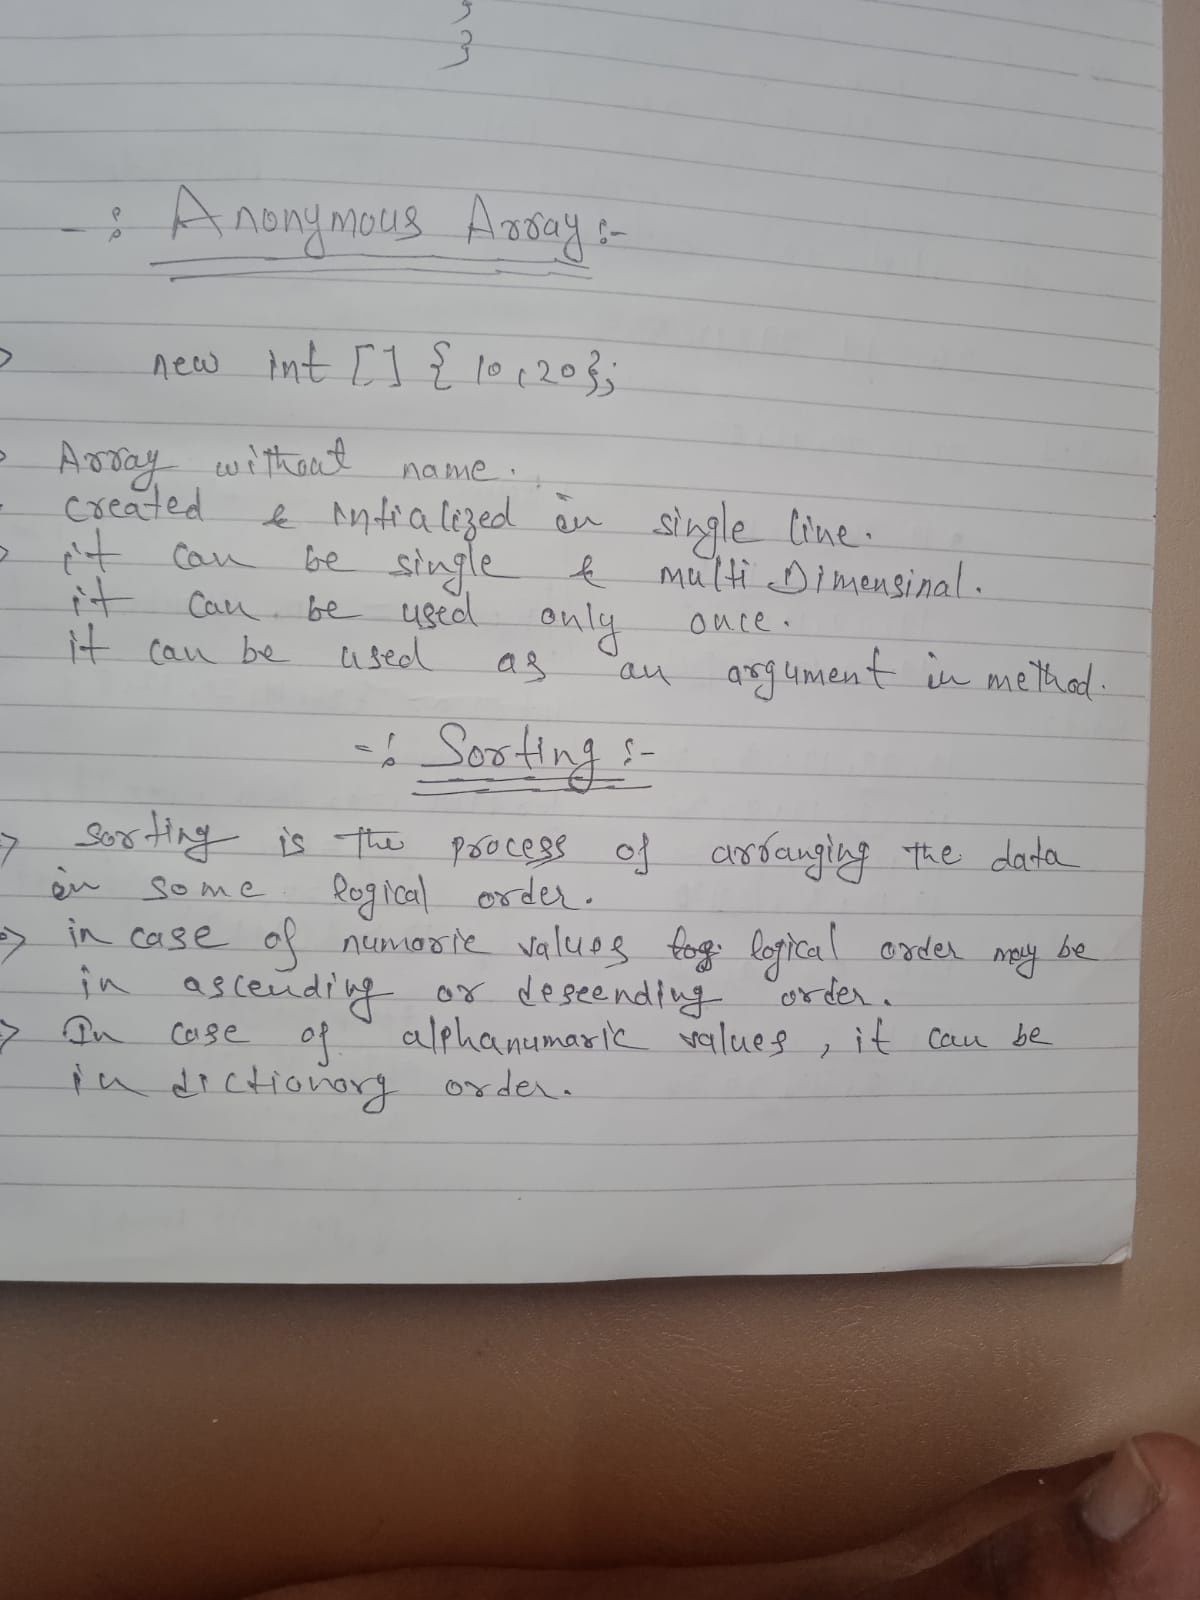 }
}
-: Anonymous Array :-
new int [] { 10,20};
Array without name.
created & intialized in single line.
it can be single & multi Dimensinal.
it can be used only once.
it can be used as an argument in method.
-: Sorting :-
Sorting is the process of arranging the data
in some logical order.
in case of numaric values log. logical order may be
in ascending or descending order.
In case of alphanumaric values, it can be
in dictionary order.